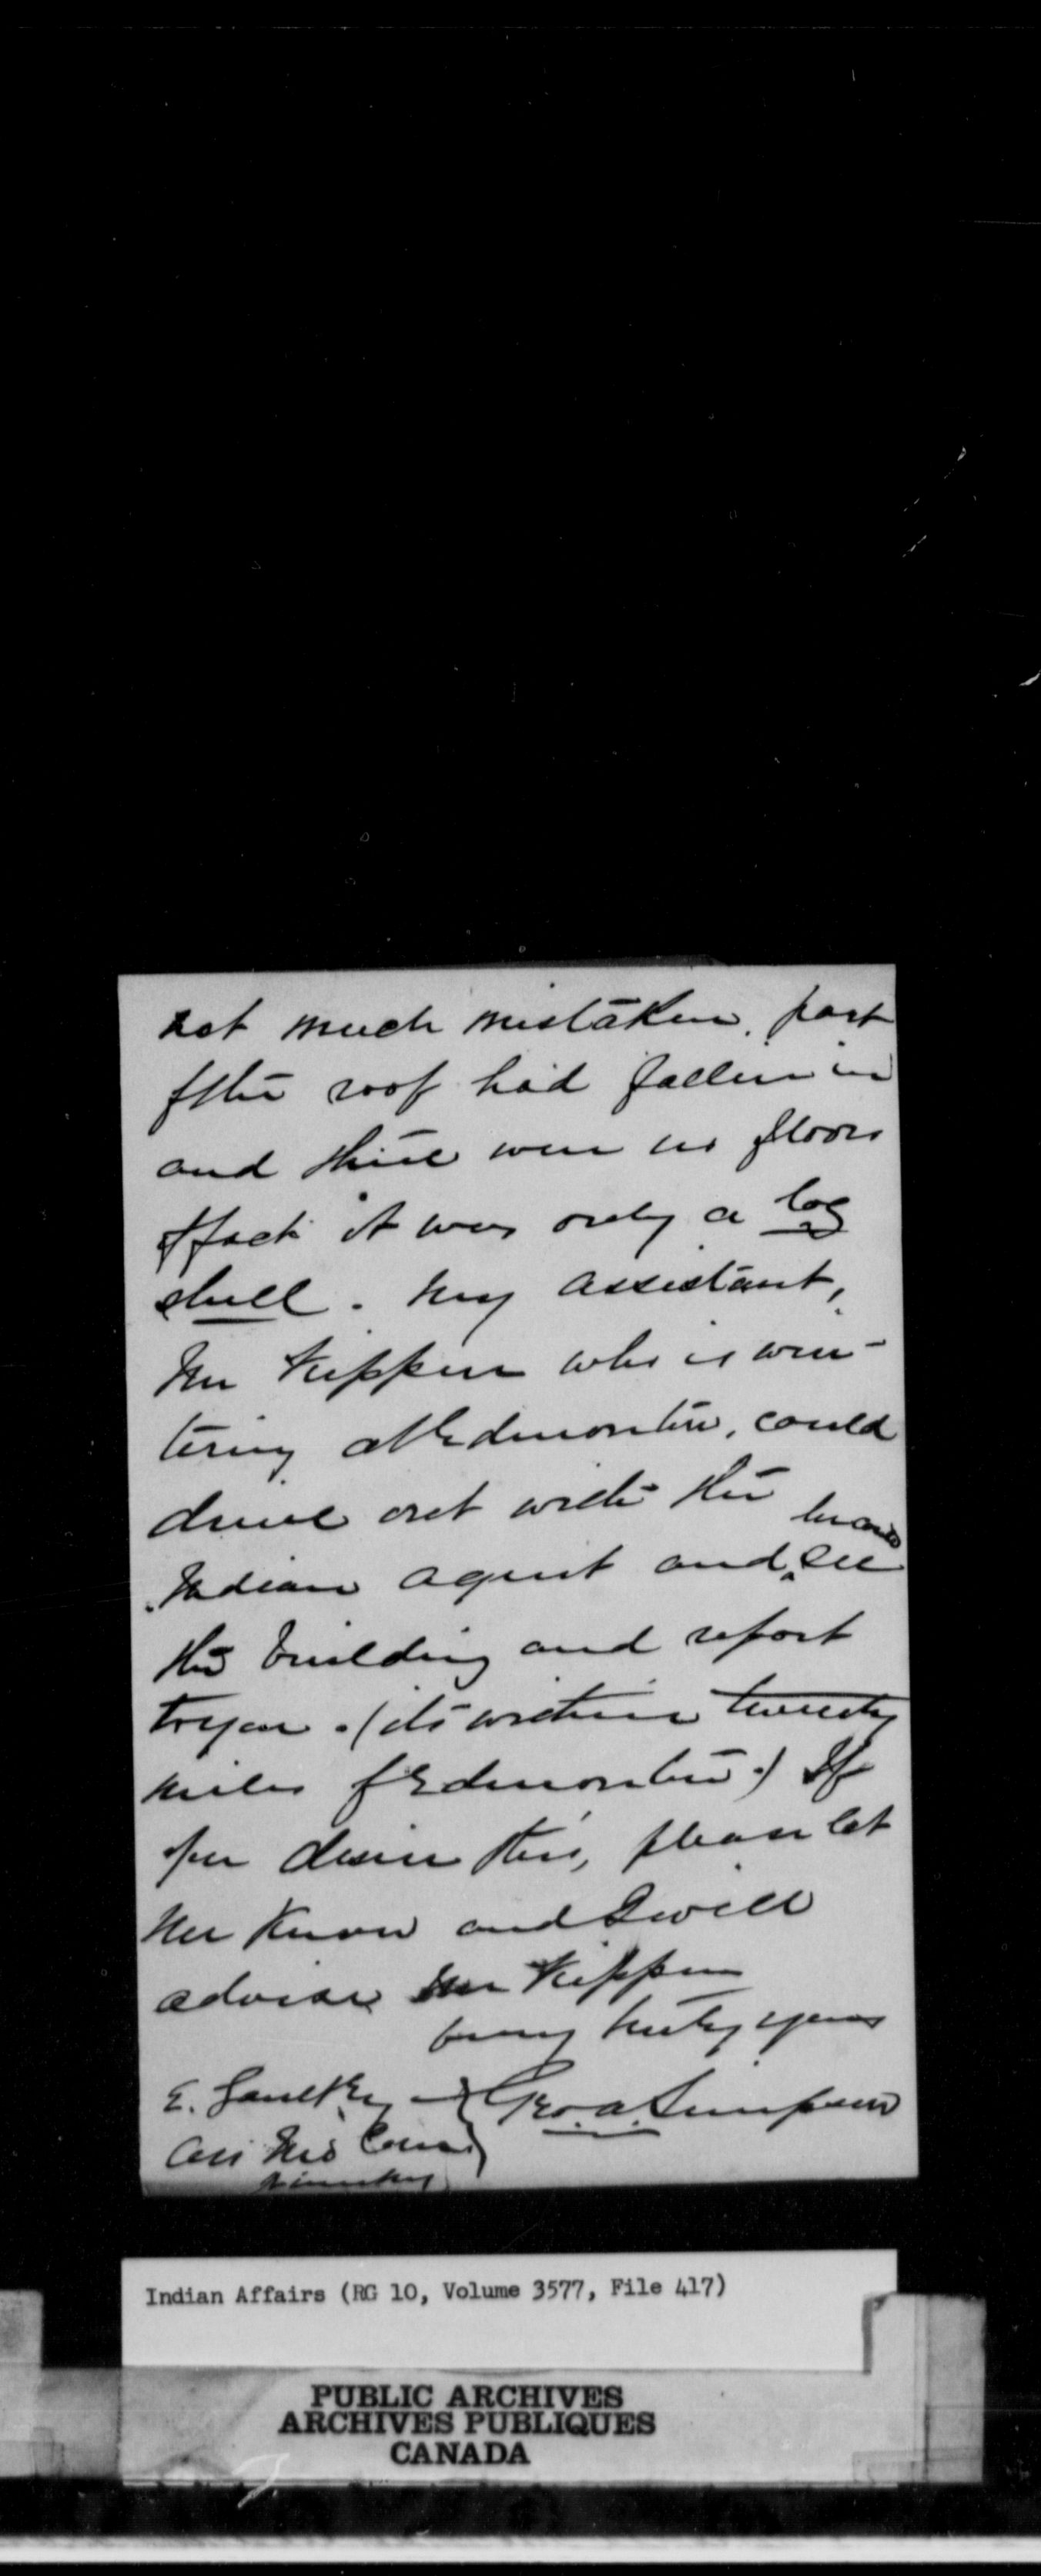 not much mistaken, part
of the roof had fallen in
and there were no floors
of fact it was only a log
shell. My assistant,
Mr Kippen who is win-
tering at Edmonton, could
drive out with the
Indian agent and see
the building and report
to you. (its within twenty
miles of Edmonton.) If
you desire this, please let
me know and I will
advise Mr Kippen
truly yours
E. Galt Esq } Geo A Simpson
Ass Ind Com
Indian Affairs (RG 10, Volume 3577, File 417)
PUBLIC ARCHIVES
ARCHIVES PUBLIQUES
CANADA